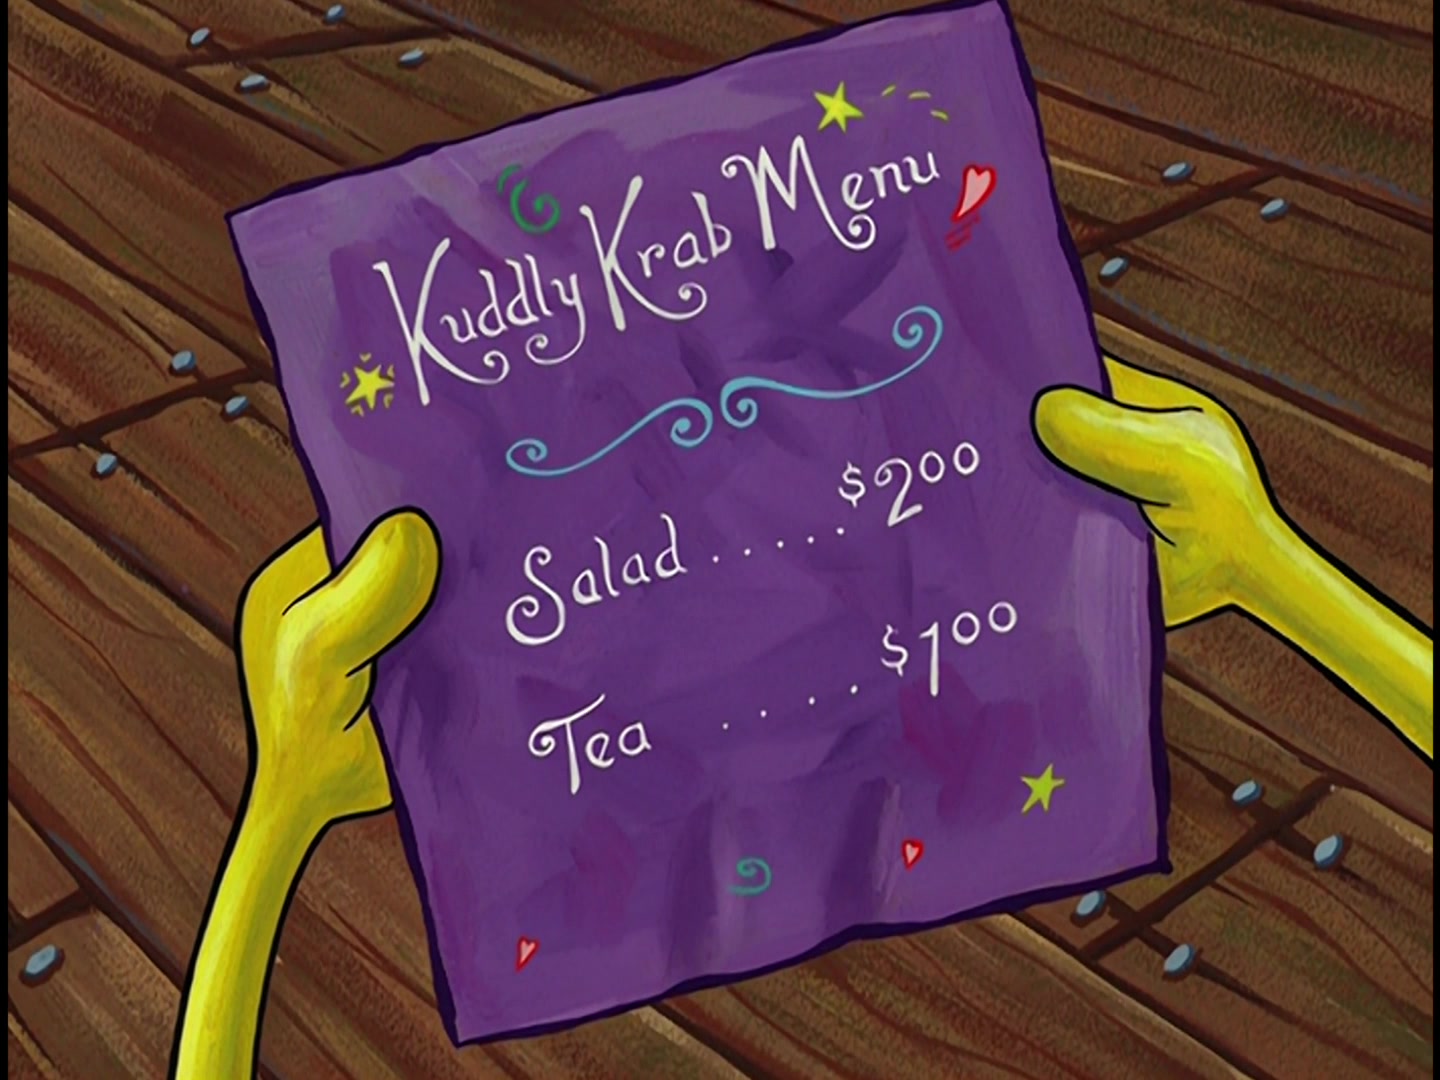 Kuddly Krab Menu
Salad ..... $2.00
Tea .... $1.00